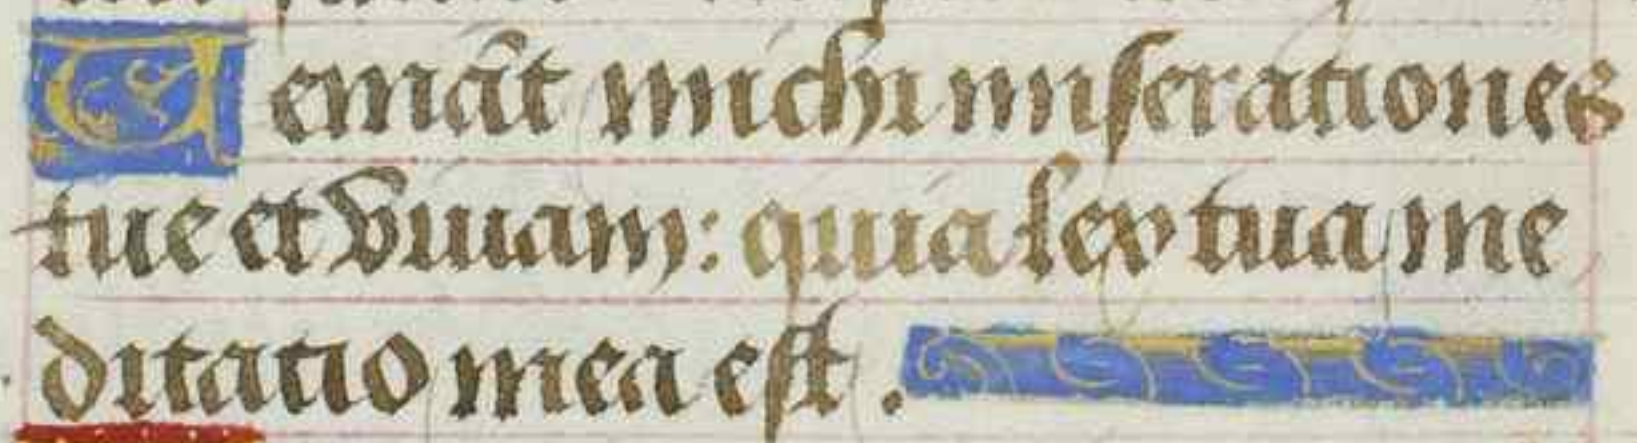 Ueniāt michi miserationes
tue et viuam: quia lex tua me
ditatio mea est.